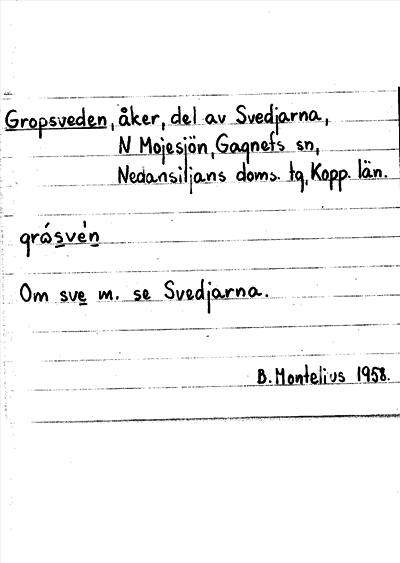 Gropsveden, åker, del av Svedjarna,
N Mojesjön, Gagnefs sn,
Nedansiljans doms. tg, Kopp. län.
grósvén
Om sve m. se Svedjarna.
B. Montelius 1958.